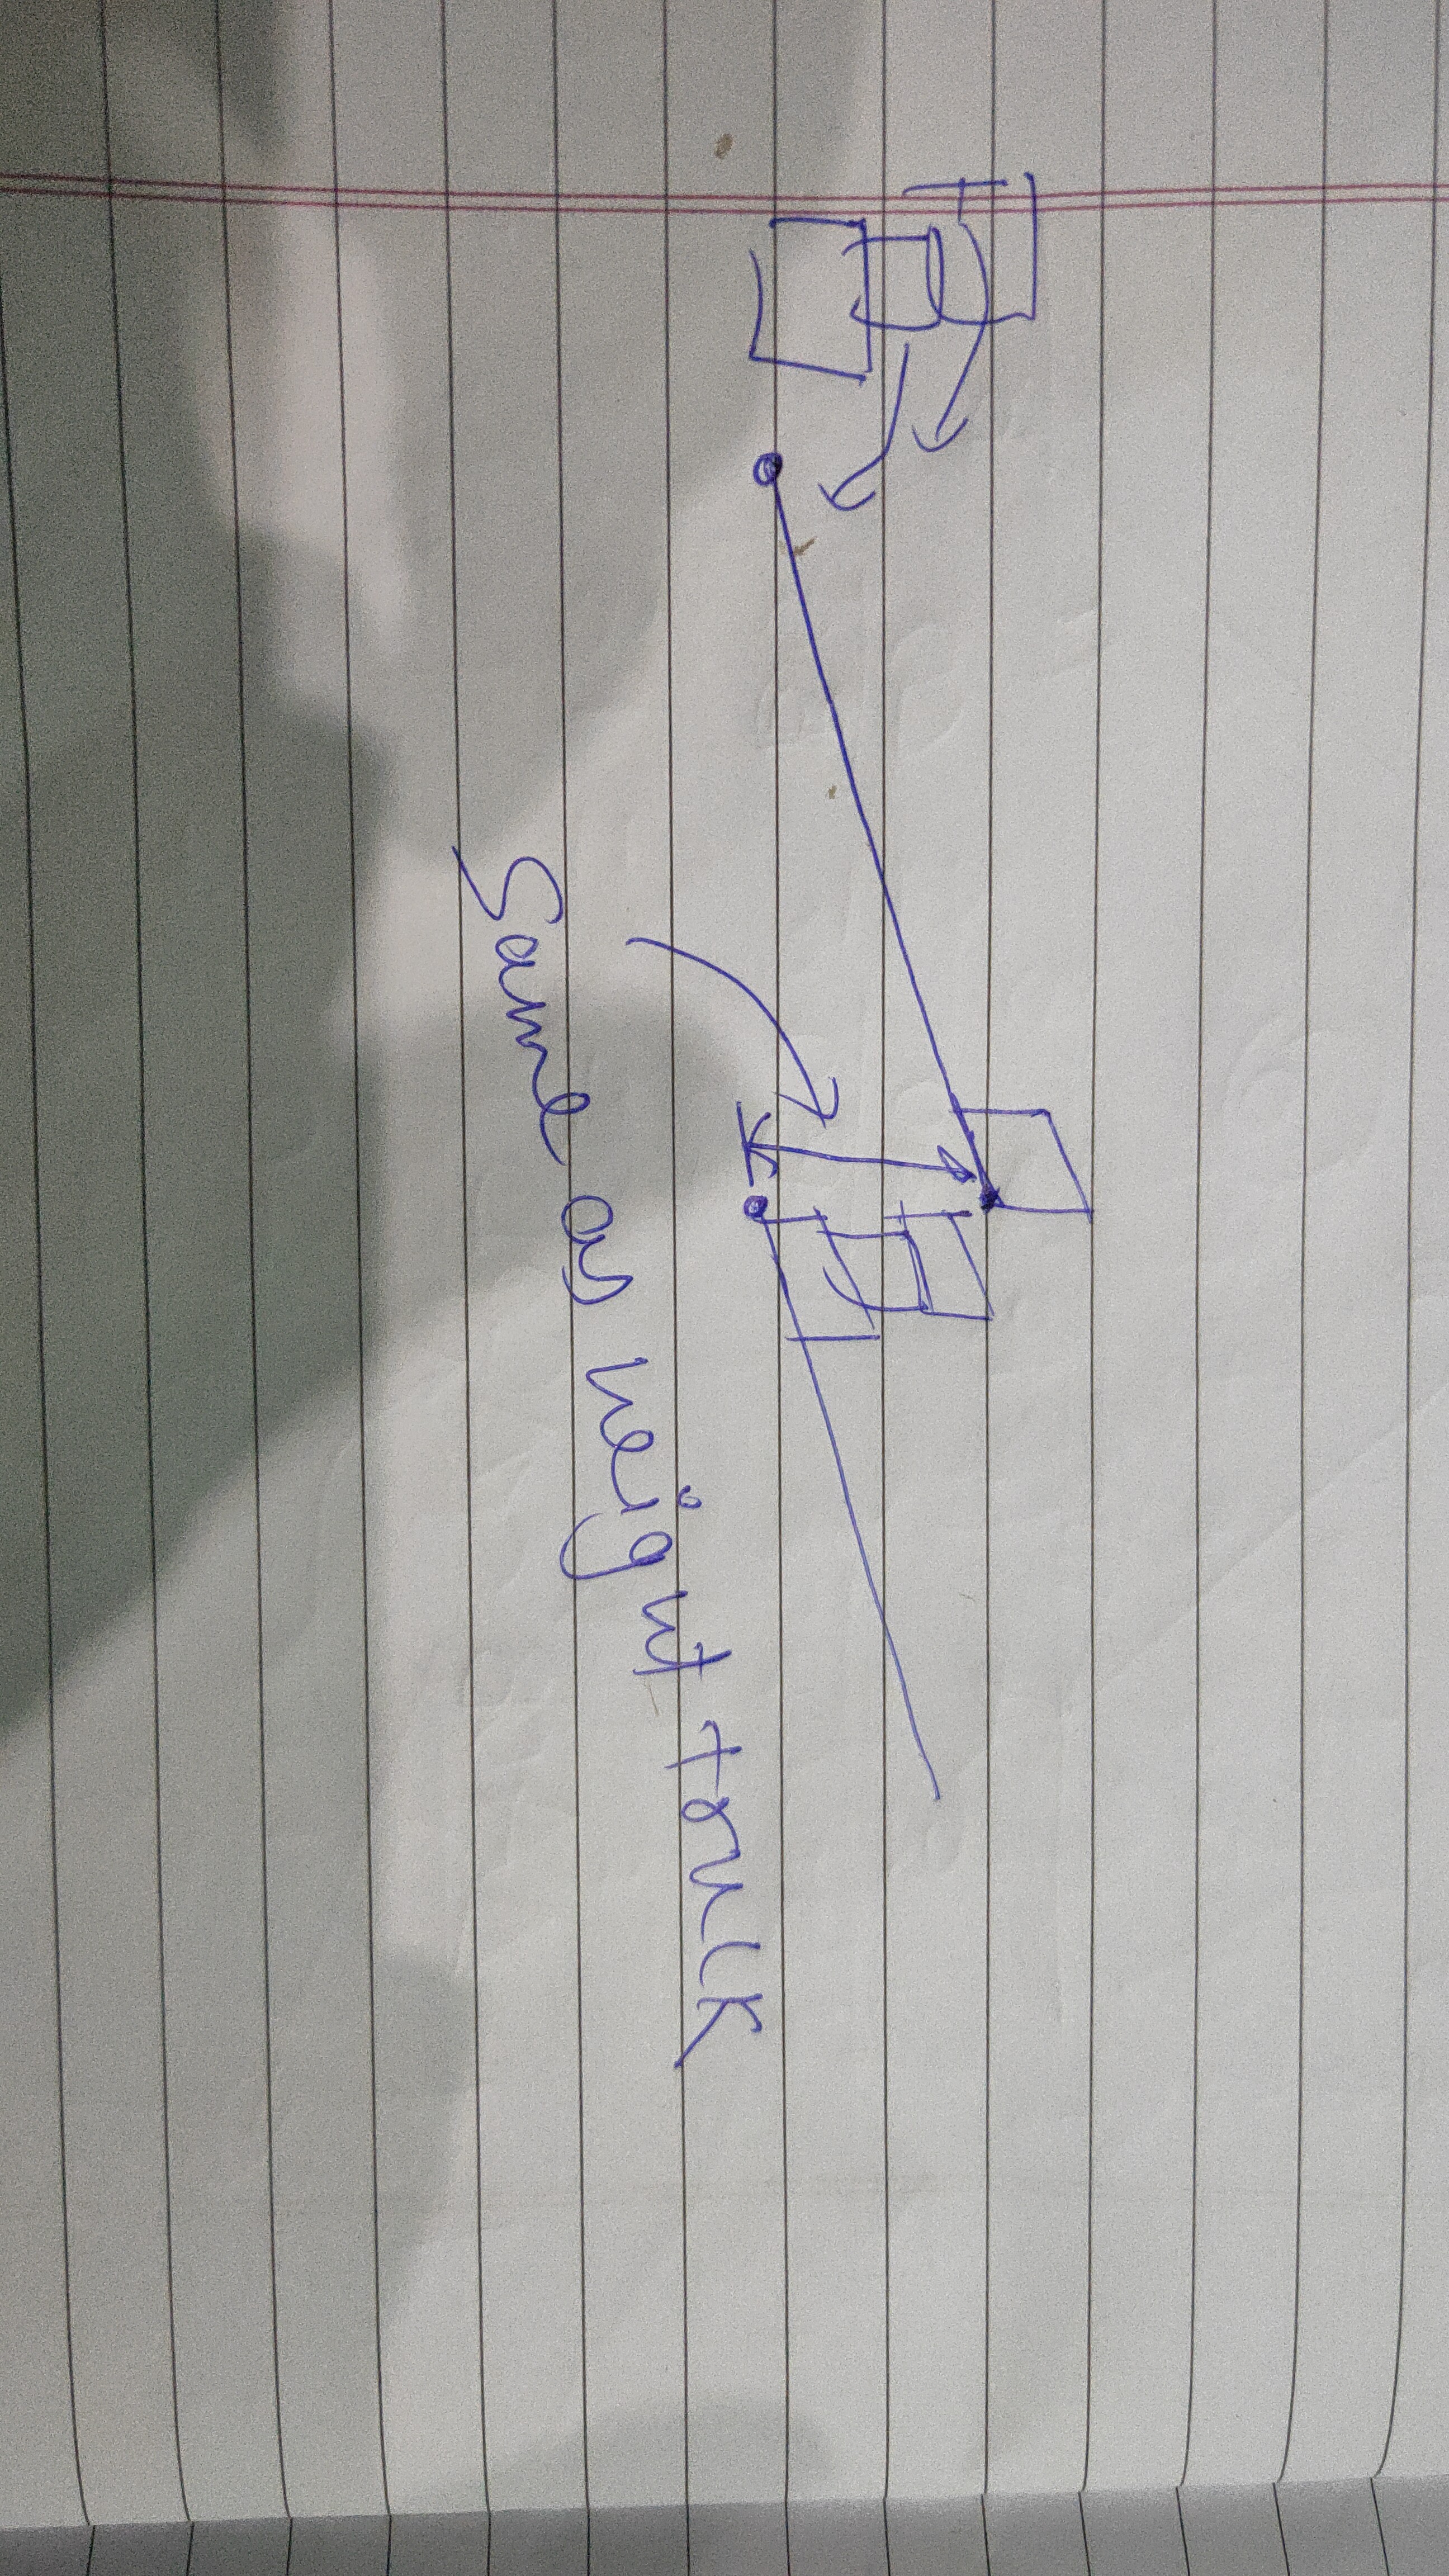 Same as height truck